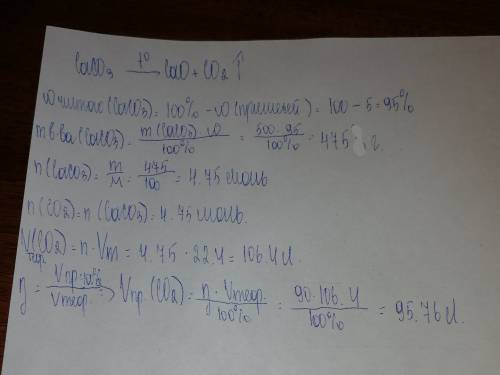 CaCO₃ —t°→ CaO + CO₂ ↑
ω чистого (CaCO₃) = 100% - ω (примесей) = 100 - 5 = 95%
m в-ва (CaCO₃) = m(CaCO₃) · ω / 100% = 500 · 95 / 100% = 475 г.
n (CaCO₃) = m / M = 475 / 100 = 4.75 моль
n (CO₂) = n (CaCO₃) = 4.75 моль.
V(CO₂) теор. = n · Vm = 4.75 · 22.4 = 106.4 л.
η = Vпр. · 100% / Vтеор. → Vпр. (CO₂) = η · Vтеор. / 100% = 90 · 106.4 / 100% = 95.76 л.